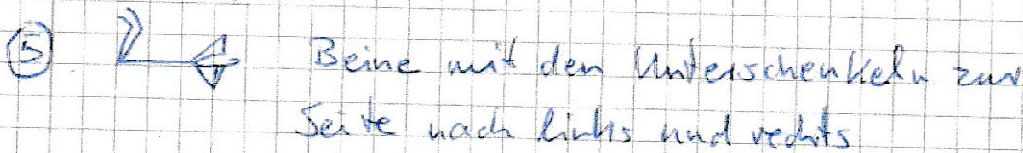 5 Beine mit den Unterschenkeln zur
Seite nach links und rechts